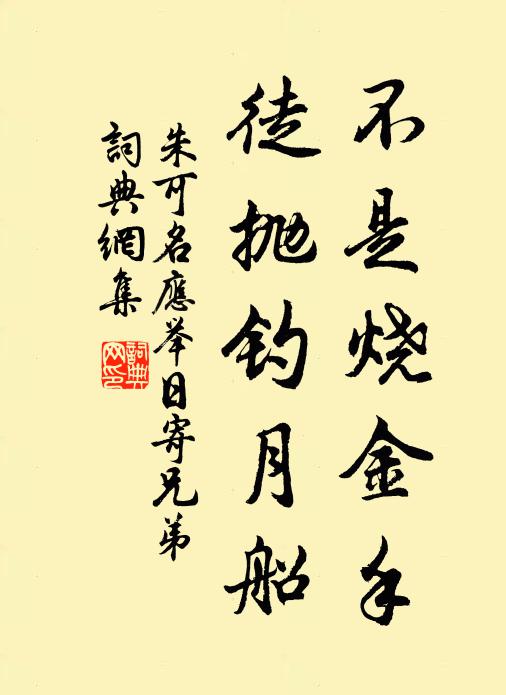 不是烧金手
徒抛钓月船
朱可名應举日寄兄弟
詞典網集
詞典網印